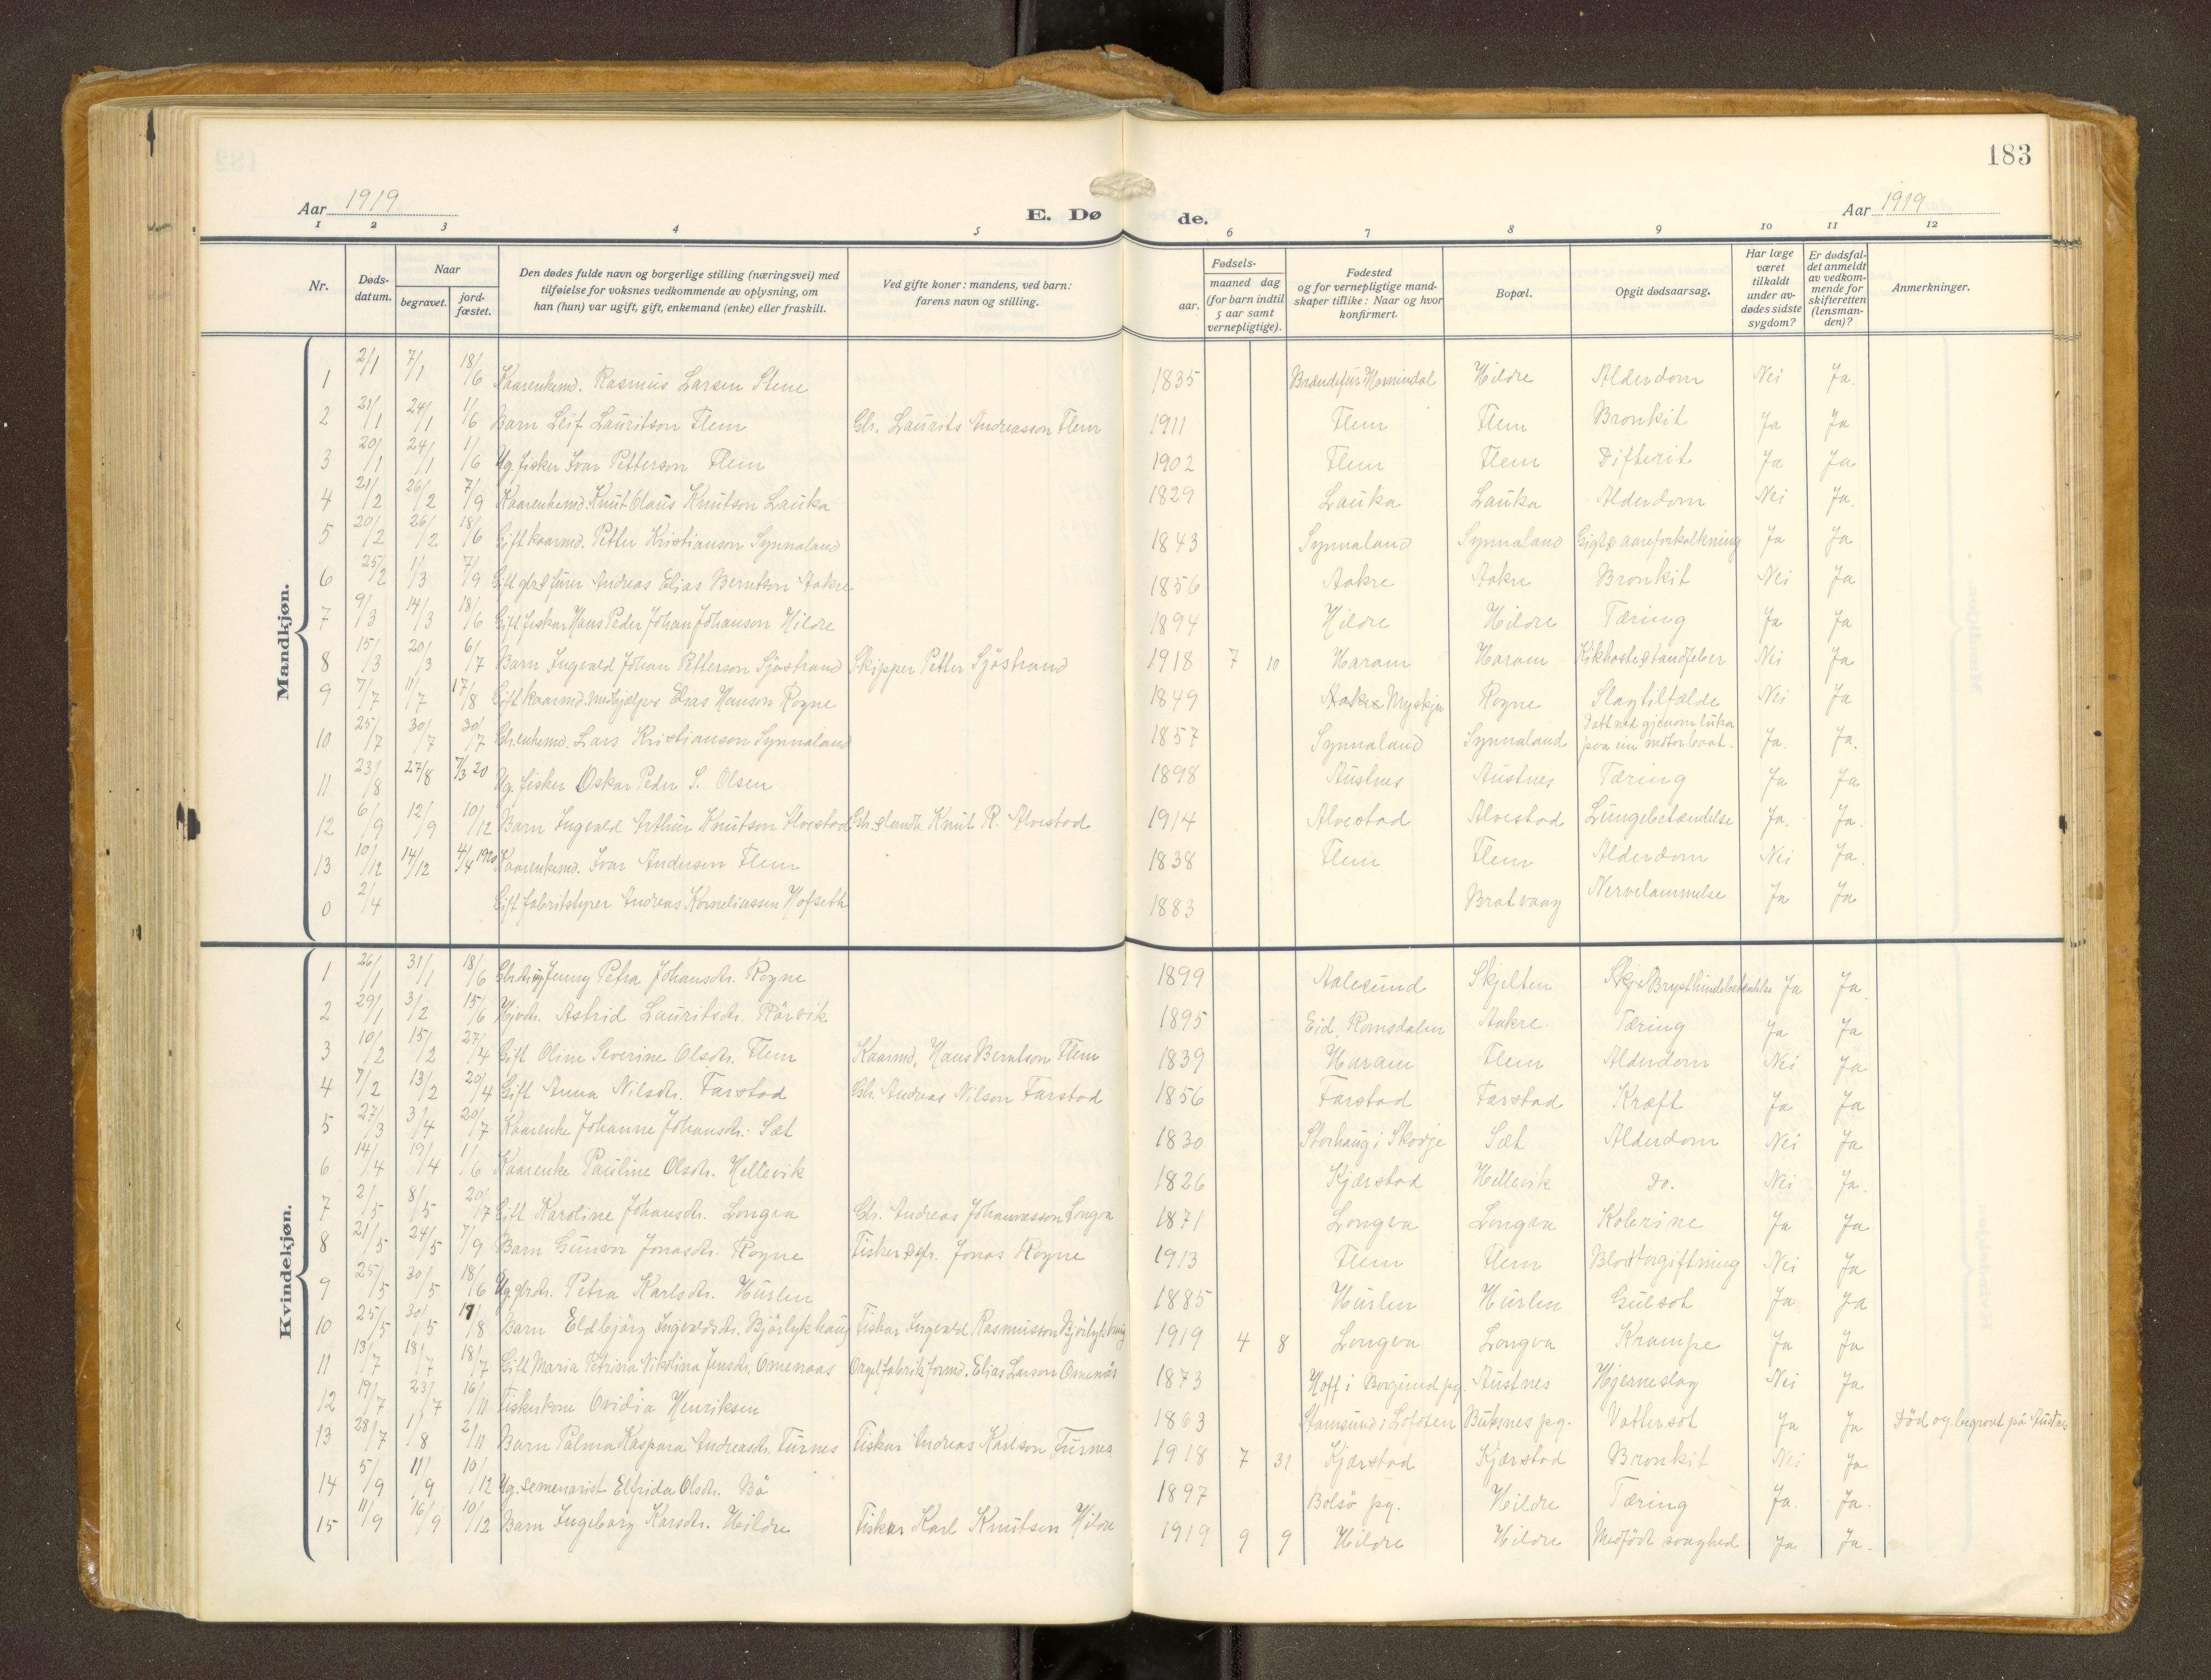 183
Aar 1919
E. Døde.
Aar 1919
1 2 3 4 5 6 7 8 9 10 11 12
Nr.
Døds-datum.
Naar
begravet.
jord-fæstet.
Den dødes fulde navn og borgerlige stilling (næringsvei) med
tilføielse for voksnes vedkommende av oplysning, om
han (hun) var ugift, gift, enkemand (enke) eller fraskilt.
Ved gifte koner: mandens, ved barn:
farens navn og stilling.
Fødsels-
aar.
maaned dag
(for barn indtil
5 aar samt
vernepligtige).
Fødested
og for vernepligtige mand-
skaper tillike: Naar og hvor
konfirmert.
Bopæl.
Opgit dødsaarsag.
Har læge
været
tilkaldt
under av-
dødes sidste
sygdom?
Er dødsfal-
det anmeldt
av vedkom-
mende for
skifteretten
(lensman-
den)?
Anmerkninger.
Mandkjøn.
1 2/1 7/1 18/6 Kaarenkemd. Rasmus Larsen Stene 1835 Hornindal Hildre Alderdom Nei Ja.
2 21/1 24/1 1/6 Barn Leif Lauritson Flem Gbr. Laurits Andreasson Flem 1911 Flem Flem Bronkit Ja Ja
3 20/1 24/1 1/6 Ug. fisker Ivar Petterson Flem 1902 Flem Flem Difterit Ja Ja
4 21/2 26/2 7/9 Kaarenkemd. Knut Olaus Knutson Lauka 1829 Lauka Lauka Alderdom Nei Ja.
5 20/2 26/2 18/6 Gift kaarmd. Petter Kristianson Synnaland 1843 Synnaland Synnaland Gigt & aareforkalkning Ja Ja
6 25/2 1/3 7/9 Gift gbr. & Andreas Elias Berntson Aakre 1856 Aakre Aakre Bronkit Nei Ja
7 9/3 14/3 18/6 Gift fiskar Hans Peder Johan Johanson Hildre 1894 Hildre Hildre Tæring Ja Ja
8 15/3 20/3 6/7 Barn Ingvald Johan Petterson Sjøstrand Skipper Petter Sjøstrand 1918 7 10 Haram Haram Kikhoste & tandfeber Nei Ja
9 7/7 11/7 17/8 Gift kaarmd. medhjælper Elias Hanson Rogne 1849 Aakre Myskja Rogne Slagtilfælde Nei Ja
10 25/7 30/7 30/7 Gbr. enkemd. Lars Kristianson Synnaland 1857 Synnaland Synnaland Datt ned gjenom luka paa ein motorbaat. Ja. Ja.
11 23/8 27/8 7/3 20 Ug. fisker Oskar Peder S. Olsen 1898 Austnes Austnes Tæring Ja Ja
12 6/9 12/9 10/12 Barn Ingvald Arthur Knutson Alvestad Gbr. & landh. Knut R. Alvestad 1914 Alvestad Alvestad Lungebetændelse Ja. Ja.
13 10/12 14/12 4/4 1920 Kaarenkemd. Ivar Anderson Flem 1838 Flem Flem Alderdom Nei Ja.
0 2/4 Gift fabrikstyrer Andreas Korneliussen Hofseth 1883 Bratvaag Nervelammelse Ja Ja
Kvindekjøn.
1 26/1 31/1 18/6 Gbrdtr. ug. Jenny Petra Johansdtr. Rogne 1899 Aalesund Skjelten Brysthindebetændelse Ja Ja
2 29/1 3/2 15/6 Astrid Lauritsdtr. Rørvik 1895 Eid, Romsdalen Aakre Tæring Ja Ja
3 10/2 15/2 27/4 Gift Oline Severine Olsdtr. Flem Kaarmd. Hans Berntson Flem 1839 Haram Flem Alderdom Nei Ja
4 7/2 13/2 20/4 Gift Anna Nilsdtr. Farstad Gbr. Andreas Nilson Farstad 1856 Farstad Farstad Kræft Ja Ja
5 27/3 3/4 20/7 Kaarenke Johanne Johansdtr. Sæt 1830 Storhaug i Skodje Sæt Alderdom Nei Ja
6 14/4 19/4 1/6 Kaarenke Pauline Olsdtr. Hellevik 1826 Kjærstad Hellevik Do. Nei Ja.
7 2/5 8/5 20/7 Gift Karoline Johansdtr. Longva Gbr. Andreas Johannesson Longva 1871 Longva Longva Kolerine Ja Ja
8 21/5 24/5 7/9 Barn Gunvor Jonasdtr. Rogne Fisker & gbr. Jonas Rogne 1913 Flem Flem Blodforgiftning Nei Ja
9 25/5 30/5 18/6 Ug. gbrdtr. Petra Karlsdtr. Hurlen 1885 Hurlen Hurlen Gulsot Ja Ja
10 25/5 30/5 17/8 Barn Eldbjørg Ingvaldsdtr. Bjørlykhaug Fiskar Ingvald Rasmusson Bjørlykhaug 1919 4 8 Longva Longva Krampe Ja Ja
11 13/7 18/7 18/7 Gift Maria Petrina Nikolina Jensdtr. Omenaas Orgelfabrik formd. Elias Larson Omenås 1873 Hoff i Borgund pg. Austnes Hjerneslag Nei Ja
12 19/7 23/7 16/11 Fiskerkone Ovidia Henriksen 1863 Stamsund i Lofoten Buksnes pg. Vattersot Ja Ja Død og begravt på Austnes
13 28/7 1/8 2/11 Barn Palma Kaspara Andreasdtr. Furnes Fiskar Andreas Karlson Furnes 1918 7 31 Kjærstad Kjærstad Bronkit Nei Ja
14 5/9 11/9 10/12 Ug. semenarist Elfrida Olsdtr. Bø 1897 Bolsø pg. Hildre Tæring Ja. Ja.
15 11/9 16/9 10/12 Barn Ingeborg Karsdtr. Hildre Fiskar Karl Knutson Hildre 1919 9 9 Hildre Hildre Medfødt svaghed Ja Ja.